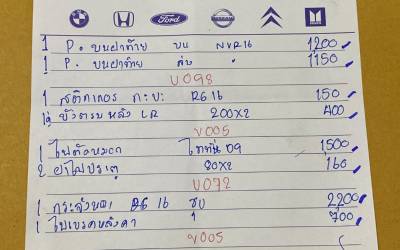 Ford NISSAN
1 P. บนฝาท้าย บน NVR16 1200
1 P. บนฝาท้าย 1150
V098
1 สติกเกอร์ กะบะ R616 150
หลัง LR 200X2 400
V005
1 ไฟตัดหมอก ไททัน 09 1500
2 ฝาไฟประตู 80X2 160
V072
1 R616 2200
1 ไฟเบรคหลังคา 1 700
V005